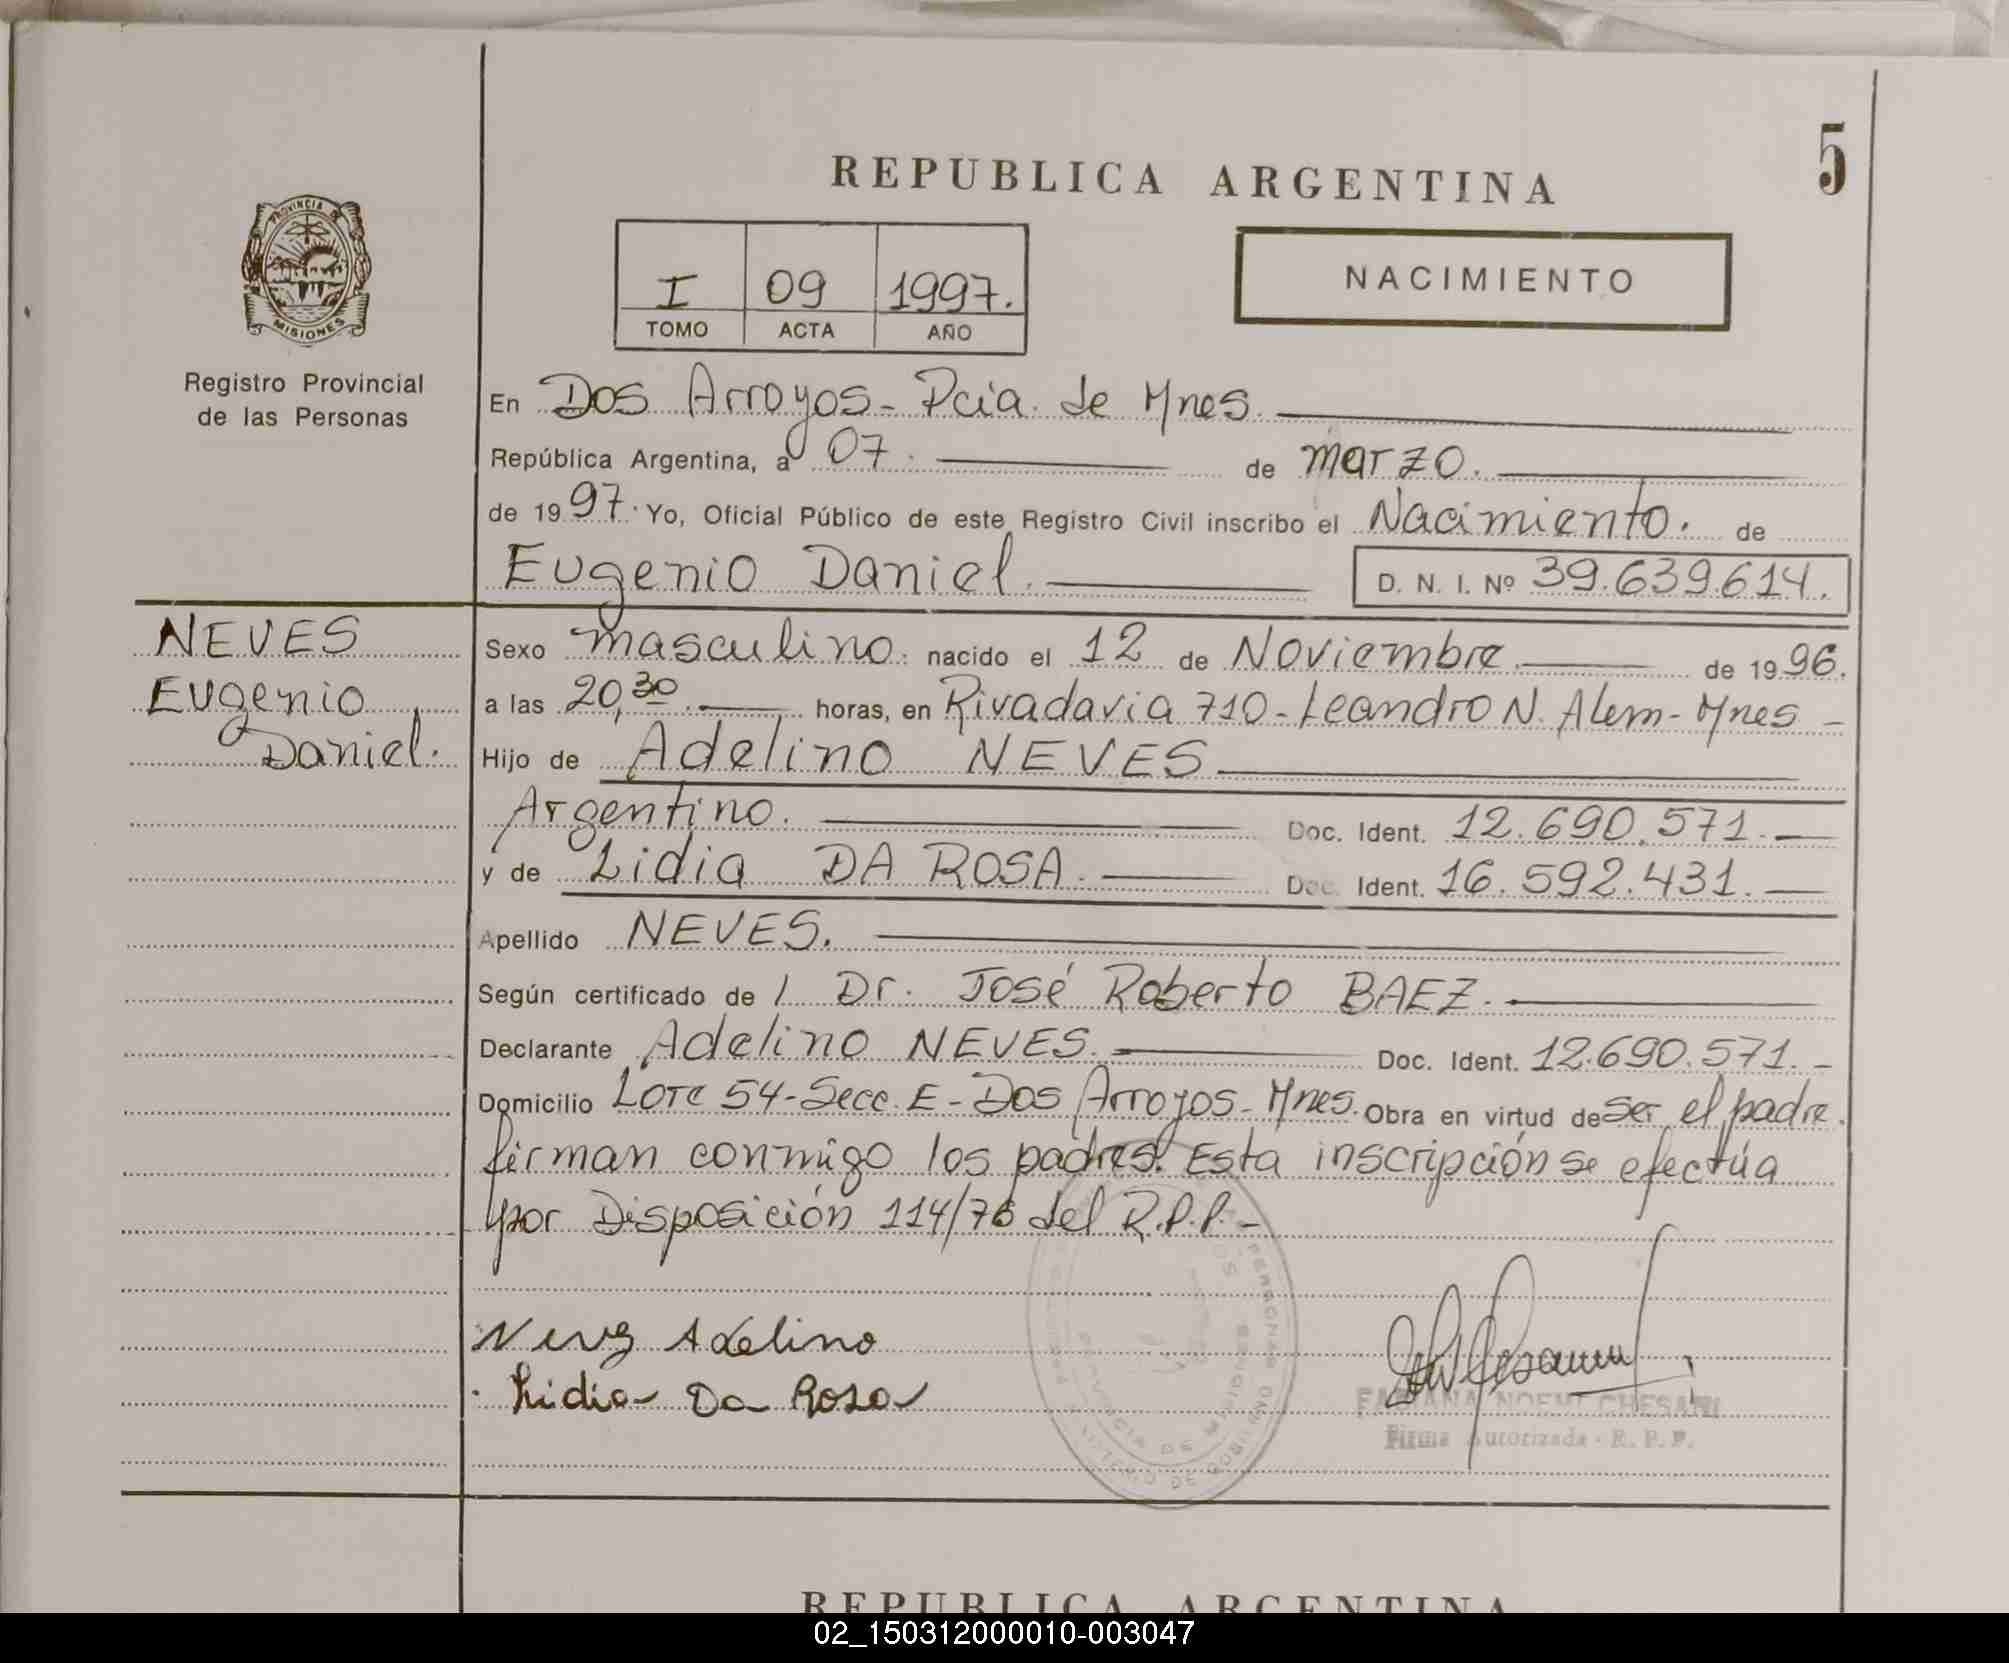 5
REPUBLICA ARGENTINA
PROVINCIA DE
MISIONES
Registro Provincial
de las Personas
I 09 1997.
TOMO ACTA AÑO
NACIMIENTO
En Dos Arroyos - Pcia. de Mnes.
República Argentina, a 07. de marzo.
de 1997. Yo, Oficial Público de este Registro Civil inscribo el Nacimiento. de
Eugenio Daniel. D. N. I. Nº 39.639.614.
NEVES
Eugenio
Daniel.
Sexo masculino. nacido el 12 de Noviembre de 1996.
a las 20,30 horas, en Rivadavia 710 - Leandro N. Alem - Mnes -
Hijo de Adelino NEVES
Argentino. Doc. Ident. 12.690.571.
y de Lidia DA ROSA. Doc. Ident. 16.592.431.
Apellido NEVES.
Según certificado de / Dr. José Roberto BAEZ.
Declarante Adelino NEVES. Doc. Ident. 12.690.571. -
Domicilio Lote 54 - Secc. E - Dos Arroyos - Mnes. Obra en virtud de ser el padre.
firman conmigo los padres. Esta inscripción se efectúa
por Disposición 114/76 del R.P.P. -
Neves Adelino
Lidia Da Rosa
FABIANA NOEMI CHESANI
Firma Autorizada - R. P. P.
PROVINCIA DE MISIONES
MINISTERIO DE GOBIERNO
REPUBLICA ARGENTINA
02_150312000010-003047